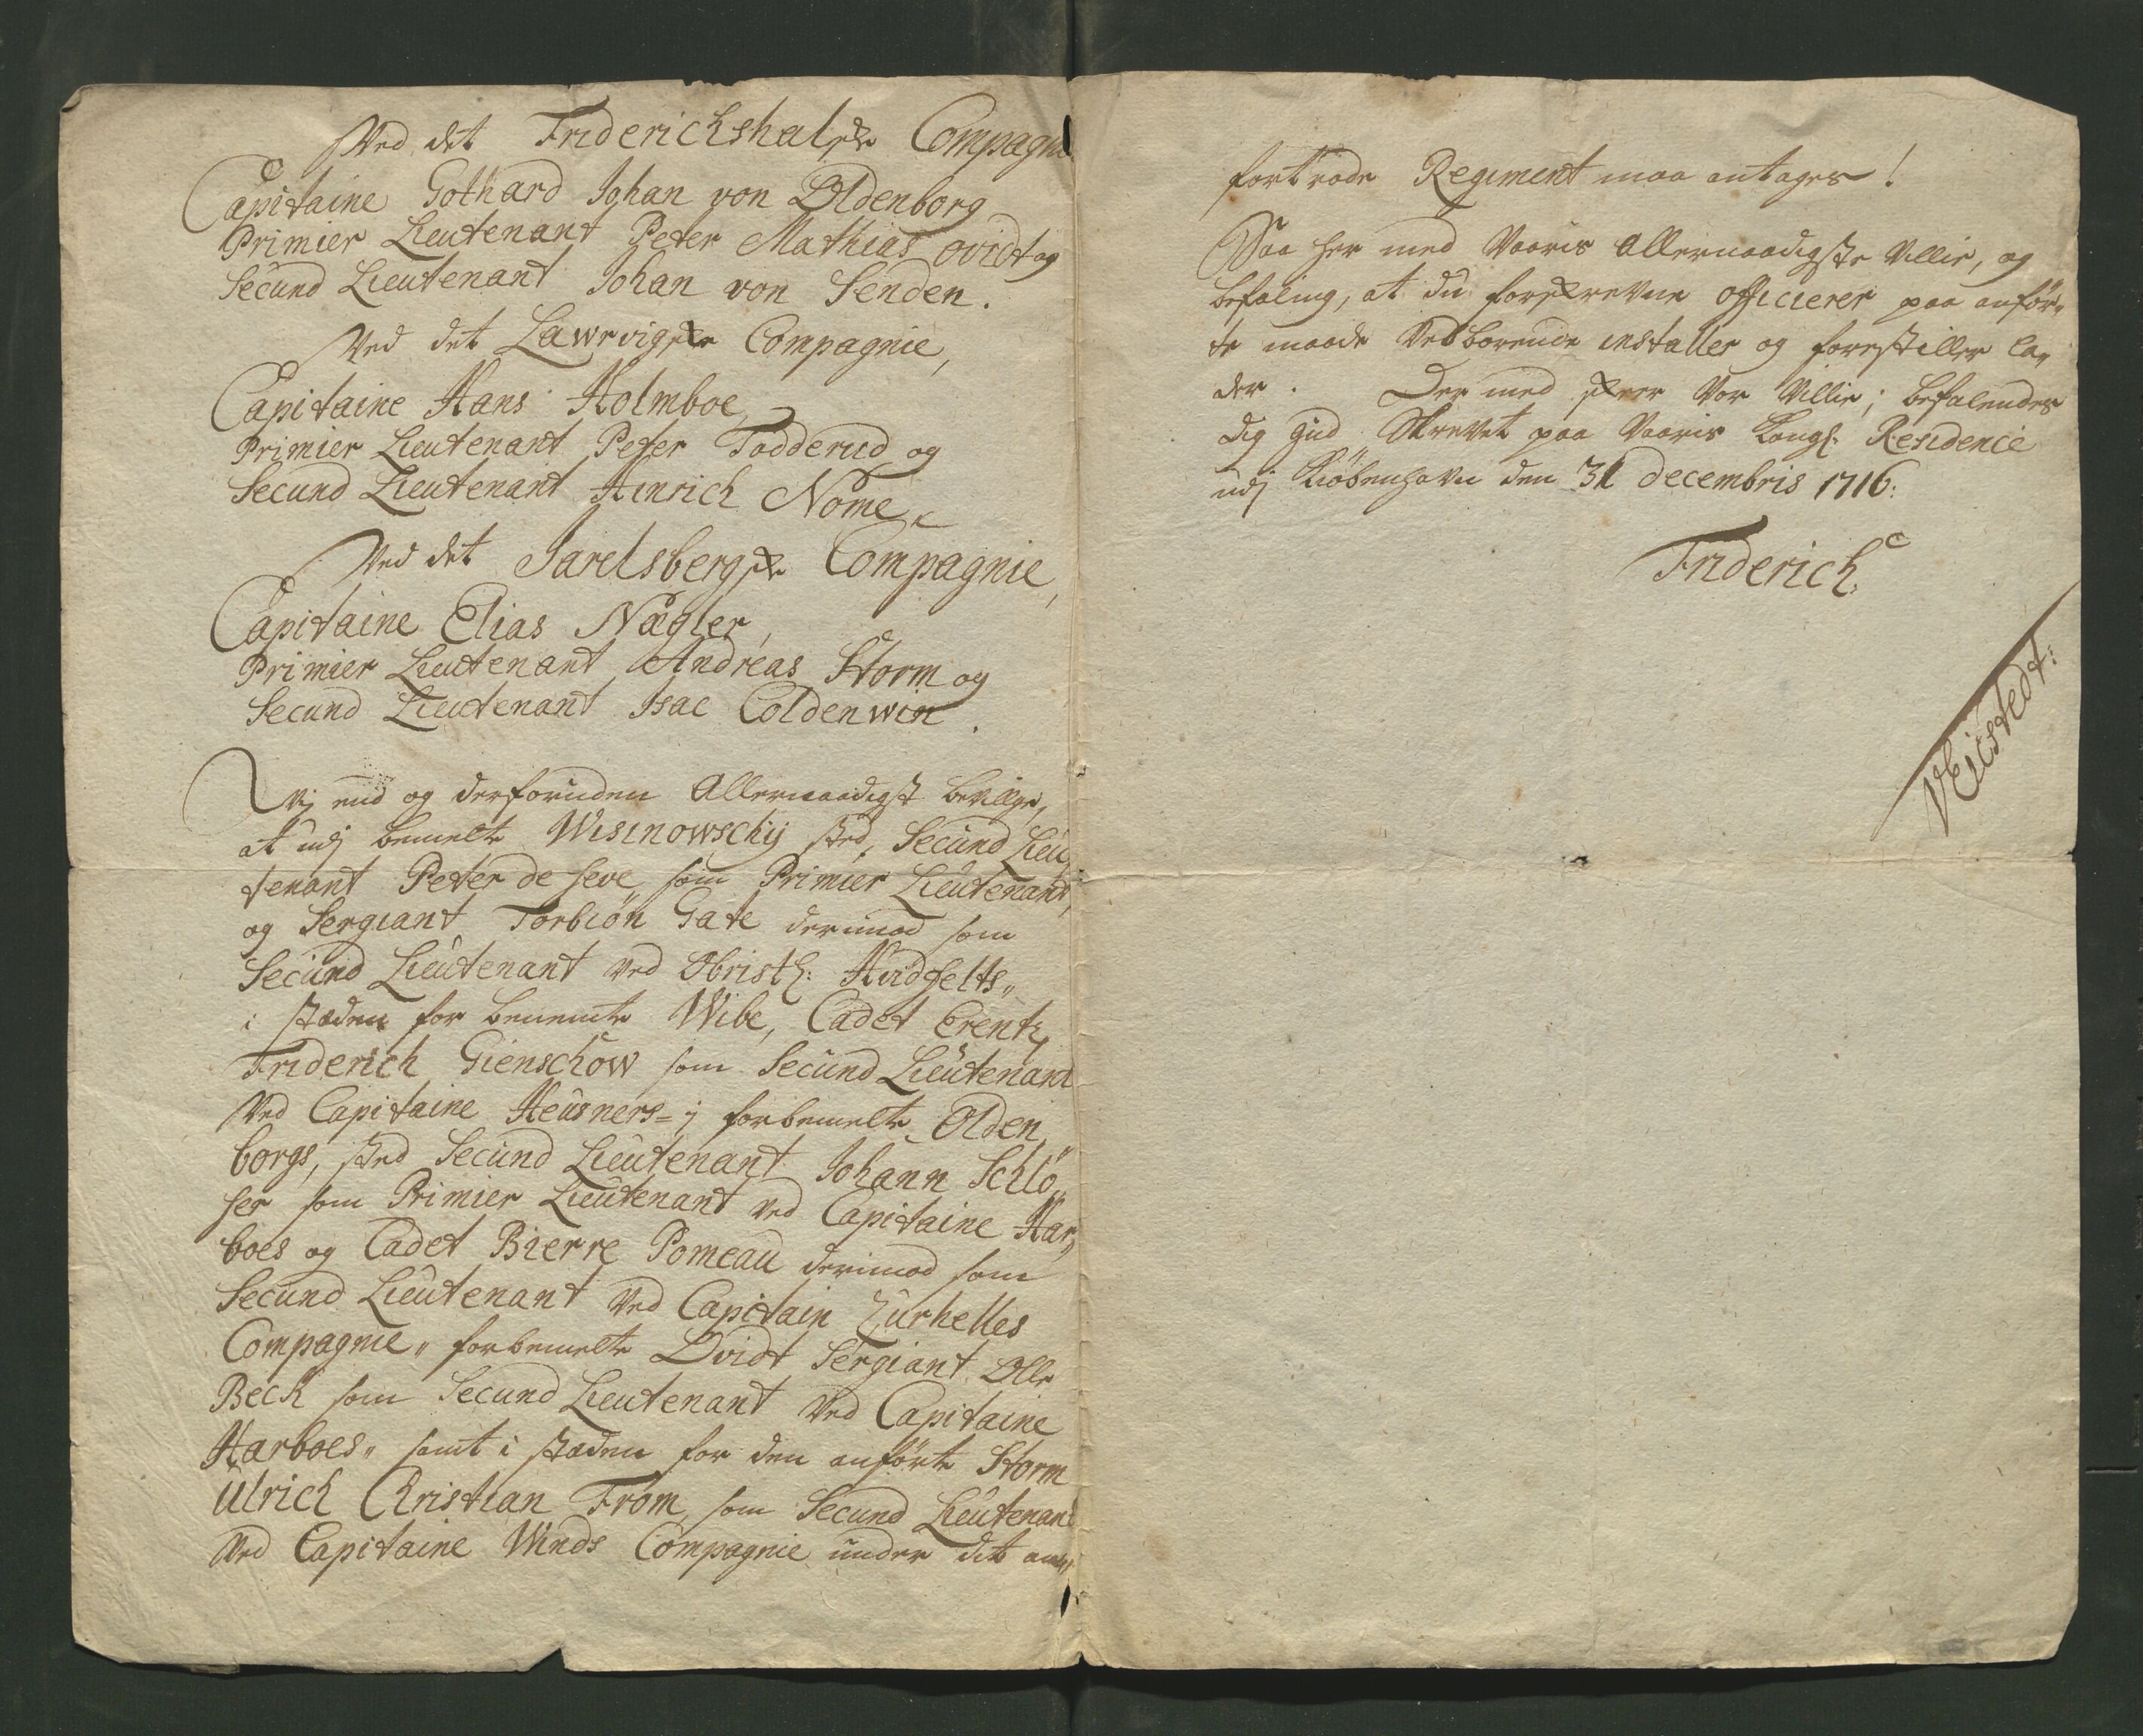 Ved det Friderichshalske Compagnie
Capitaine Gothard Johan von Oldenborg
Primier Lieutenant Peter Mathias Ovidt og
Secund Lieutenant Johan von Senden.
Ved det Lawrvigske Compagnie,
Capitaine Hans Holmboe,
Primier Lieutenant Peter Todderud og
Secund Lieutenant Hinrich Nome
Ved det Jarelsbergske Compagnie,
Capitaine Elias Nægler,
Primier Lieutenant Andreas Storm og
Secund Lieutenant Isac Coldenwin.
Vj end og derforuden Allernaadigst bevilge,
at udj bemelte Wisinowschij sted, Secund Lieu„
tenant Peter de Seve som Primier Lieutenant,
og Sergiant Torbiön Gate derimod som
Secund Lieutenant ved Obristl: Hudfelts„
i stæden for benemte Wibe, Cadet Erentz
Friderich Gienschow som Secund Lieutenant
Ved Capitaine Heusners- j forbemelte Olden„
borgs, sted Secund Lieutenant Johann Schlö„
ser som Primier Lieutenant ved Capitaine Har„
boes og Cadet Bierre Pomeau derimod som
Secund Lieutenant ved Capitain Zurhelles
Compagnie„ forbemelte Ovidt Sergiant Olle
Beck som Secund Lieutenant ved Capitaine
Harboes„ samt i stæden for den anförte Storm
Ulrich Christian From som Secund Lieutenant
Ved Capitaine Winds Compagnie under dit an„
fortrode Regiment maa antages!
Saa er her med Voris Allernaadigste Villie, og
befaling, at du forskrevne Officierer paa anför„
te maade Vedborende installer og forestiller la„
der. Der med skeer Vor Villie; befalendes
dig Gud Skrevet paa Voris Kongl: Residence
udj Kiöbenhavn den 31 decembris 1716:
Friderich